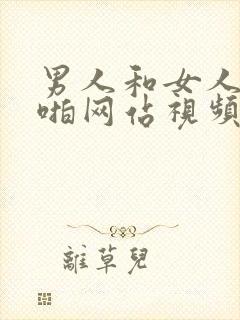 男人和女人
啪网佔視頻
離草兒